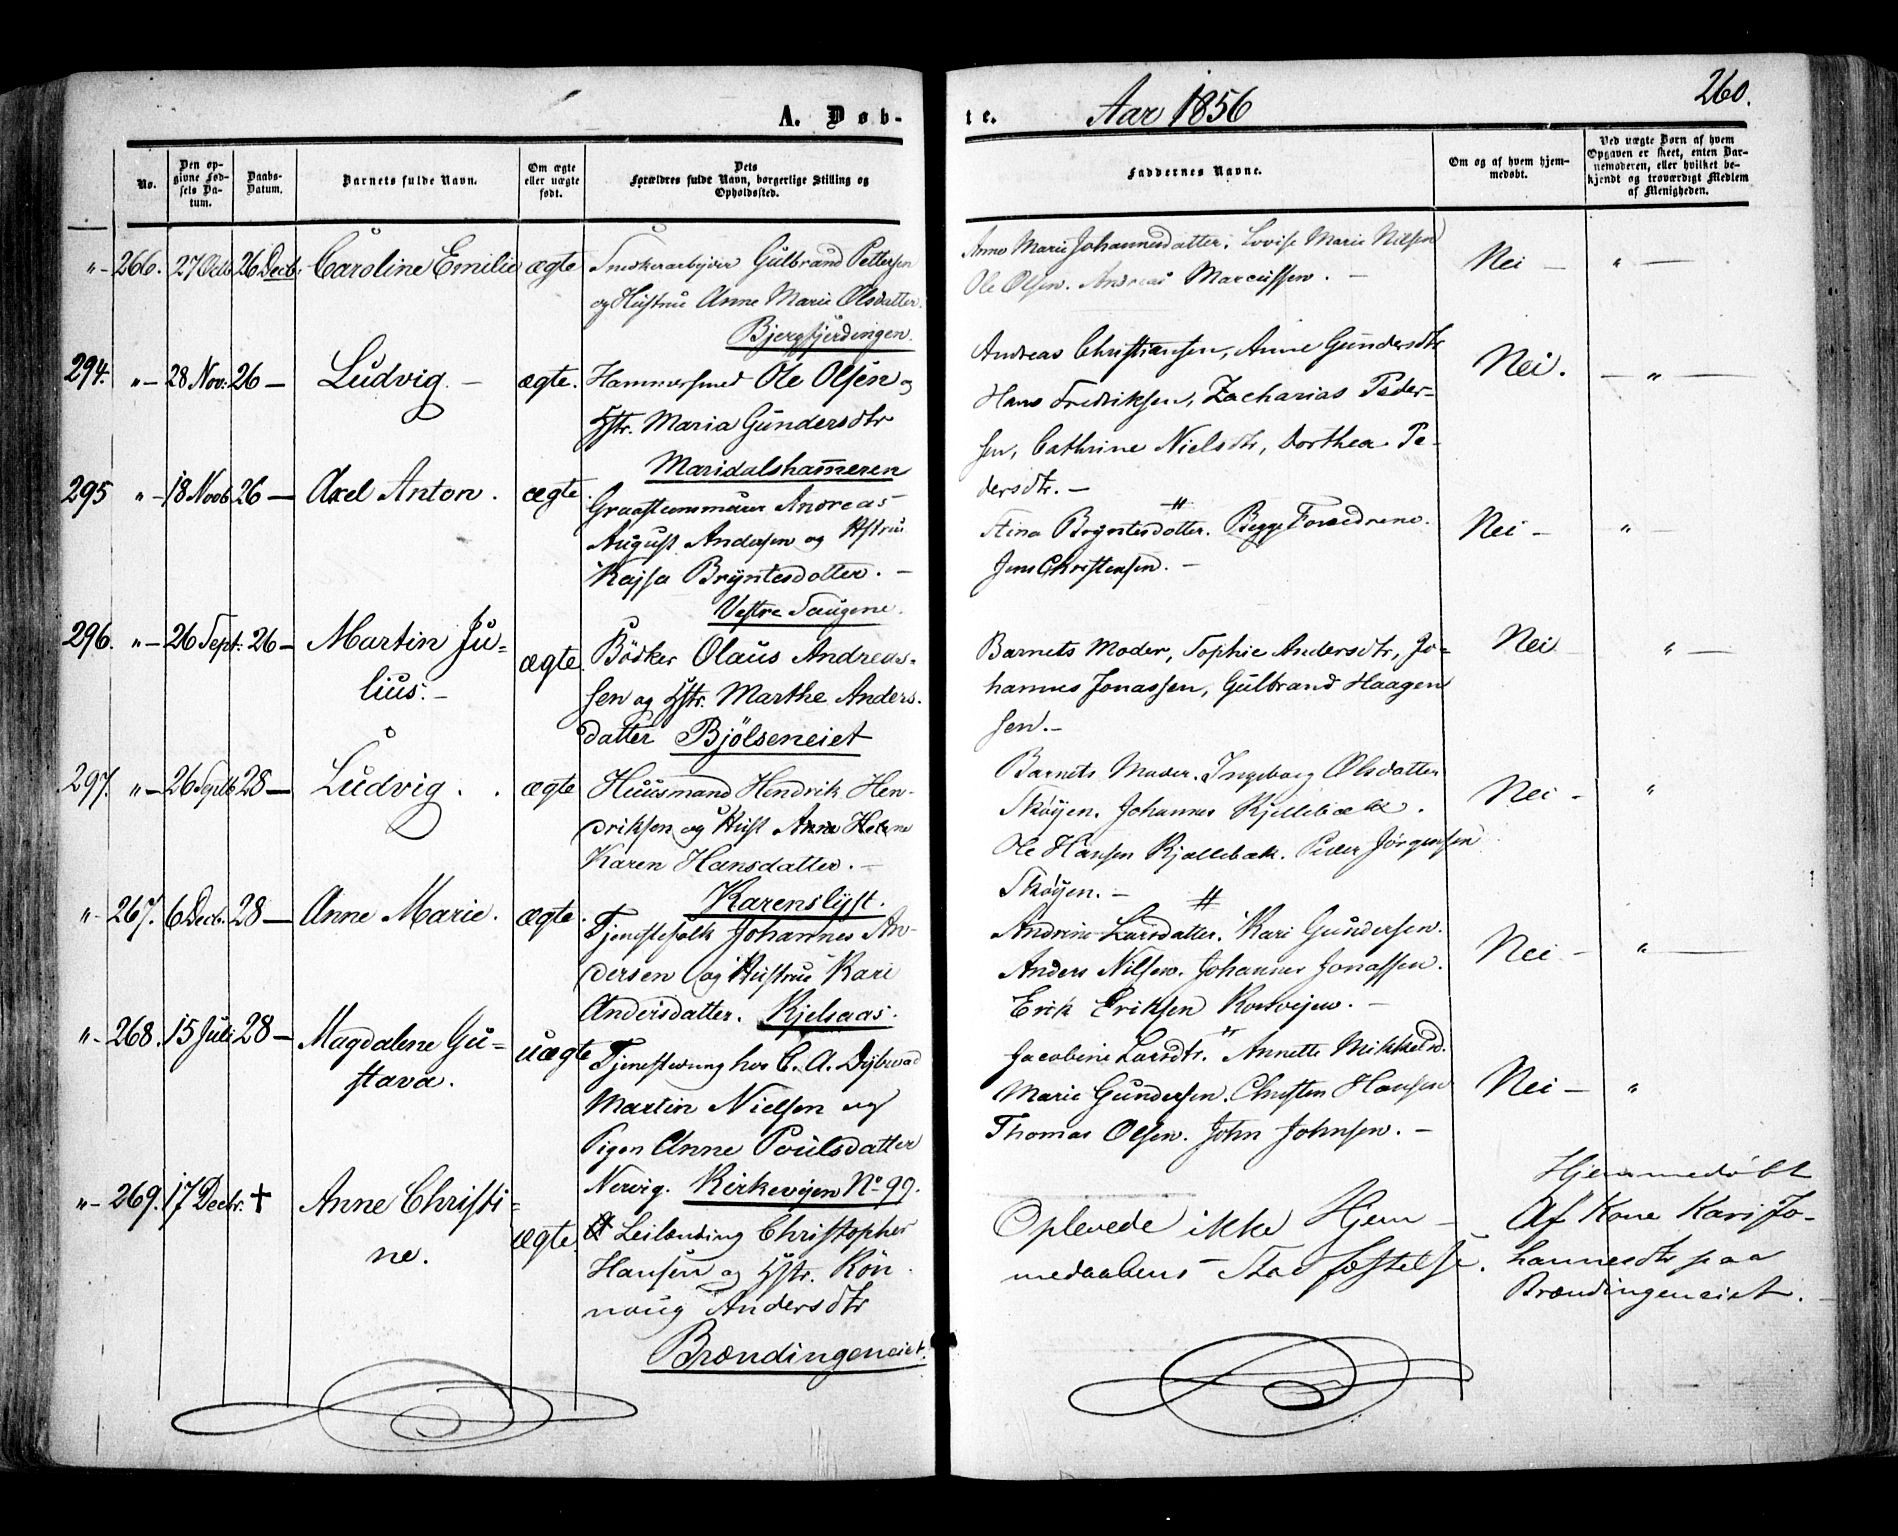 A. Døb-
te.
Aar 1856
260.
No.
Den op-
givne Fød-
sels Da-
tum.
Daabs-
Datum.
Barnets fulde Navn.
Om ægte
eller uægte
født.
Dets
Forældres fulde Navn, borgerlige Stilling og
Opholdssted.
Faddernes Navne.
Om og af hvem hjem-
medøbt.
Ved uægte Børn af hvem
Opgaven er skeet, enten Bar-
nemoderen, eller hvilket be-
kjendt og troværdigt Medlem
af Menigheden.
"- 266. 27 Octb 26 Decb: Caroline Emilie ægte
Gulbrand Pettersen
og Hustrue Anne Marie Olsdatter.
Bjergfjerdingen.
Anne Marie Johannesdatter. Lovise Marie Nilsen
Ole Olsen. Andreas Marcussen. -
Nei - " -
294. "- 28 Nov: 26 - Ludvig. - ægte.
Hammersmed Ole Olsen og
Hstr. Maria Gundersdtr
Maridalshammeren
Andreas Christiansen, Anne Gundersdtr
Hans Fredriksen, Zacharias Peder-
sen, Cathrine Nielsdtr, Dorthea Pe-
dersdtr. -
Nei. - " -
295 "- 18 Novb 26 - Axel Anton. ægte.
Andreas
August Andersen og Hstrue
Kajsa Bryntesdotter. -
Vestre Saugene.
Stina Bryntesdotter. Begge Forældrene.
Jens Christensen. -
Nei - " -
296. "- 26 Sept: 26 - Martin Ju-
lius. - ægte.
Bödker Olaus Andreas-
sen og Hstr. Marthe Anders-
datter Bjölseneiet
Barnets Moder, Sophie Andersdtr, Jo-
hannes Jonassen, Gulbrand Haagen
sen. -
Nei " -
297. "- 26 Septb 28 - Ludvig. . ægte
Huusmand Hendrik Hen-
driksen og Hust Anne Helene
Karen Hansdatter. -
Karenslyst.
Barnets Moder. Ingeborg Olsdatter
Skøyen. Johannes Kjellebæk.
Ole Hansen Kjællebæk. Peder Jørgensen
Skøyen. -
Nei - "
"- 267. 6 Decb. 28 - Anne Marie. ægte.
Tjenestefolk Johannes An-
dersen og Hustrue Kari
Andersdatter. Kjelsaas.
Andrine Larsdatter. Kari Gundersen.
Anders Nilsen. Johannes Jonassen.
Erik Eriksen -
Nei - " -
"- 268. 15 Juli 28 - Magdalene Gu-
stava. uægte
Tjenestedreng hos C. A. Dybwad
Martin Nielsen og
Pigen Anne Poulsdatter
Nervig. Kirkeveien No 99.
Jacobine Larsdtr. Annette Mikkelsd.
Marie Gundersen. Christen Hansen
Thomas Olsen. John Johnsen. -
Nei - "
"- 269. 17 Decbr. † Anne Christi-
ne. ægte.
Leilending Christopher
Hansen og Hstr. Rön-
noug Andersdtr
Brændingeneiet.
Oplevede ikke Hjem-
medaabens Stadfæstelse.
Hjemmedøbt
Af Kone Kari Jo-
hannesdtr paa
Brændingeneiet.